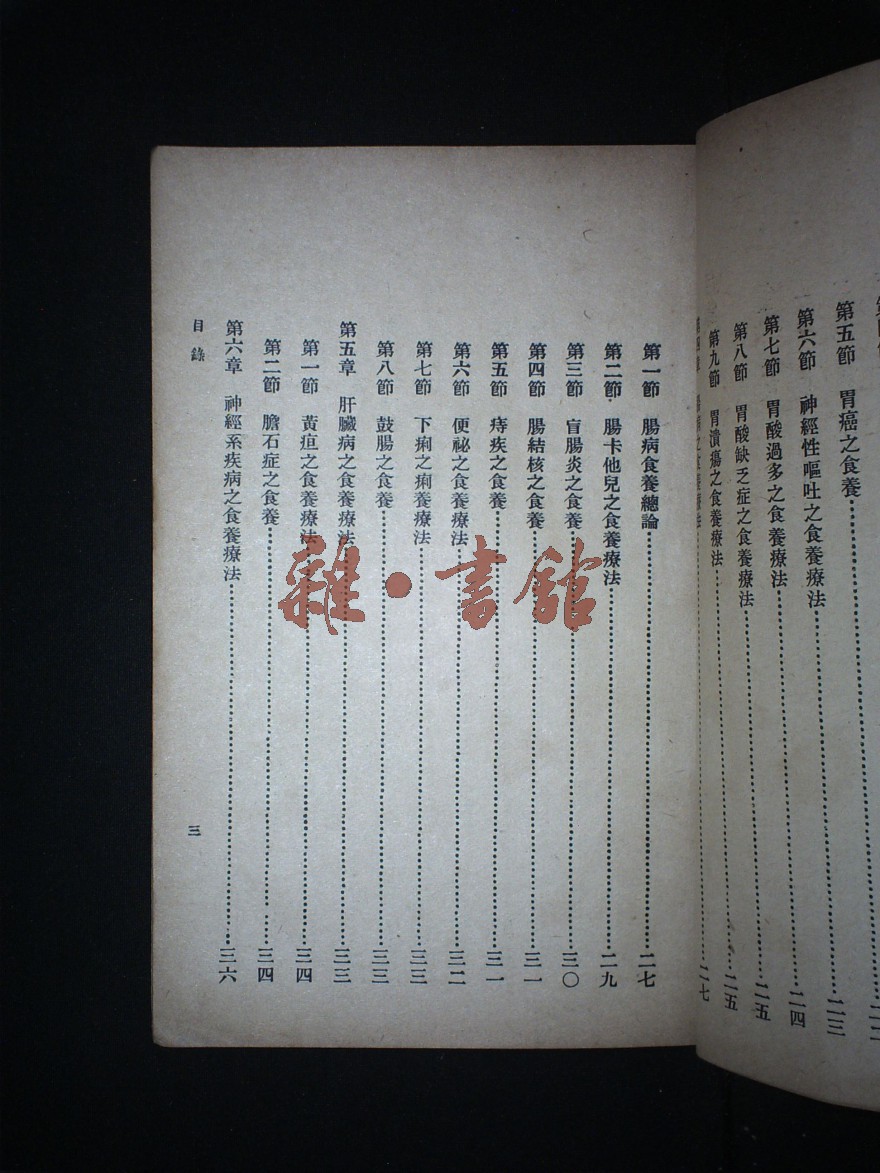 第五節　胃癌之食養……二三
第六節　神經性嘔吐之食養療法……二四
第七節　胃酸過多之食養療法……二五
第八節　胃酸缺乏症之食養療法……二五
第九節　胃潰瘍之食養療法
二七
第一節　腸病食養總論……二七
第二節　腸卡他兒之食養療法……二九
第三節　盲腸炎之食養……三〇
第四節　腸結核之食養……三一
第五節　痔疾之食養……三一
第六節　便祕之食養療法……三二
第七節　下痢之痢養療法……三三
第八節　鼓腸之食養……三三
第五章　肝臟病之食養療法……三三
第一節　黃疸之食養療法……三四
第二節　膽石症之食養……三四
第六章　神經系疾病之食養療法……三六
目錄
三
雜·書館